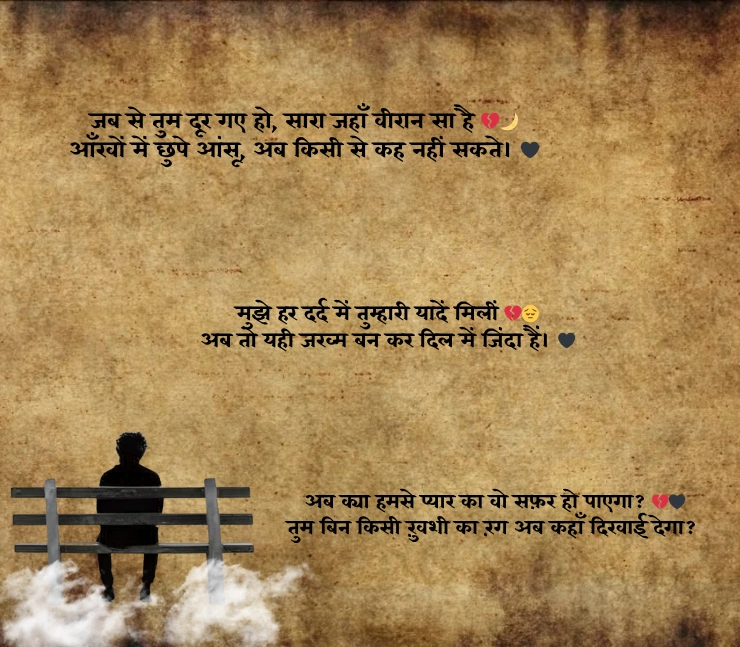 जब से तुम दूर गए हो, सारा जहाँ वीरान सा है 💔🌙
आँखों में छुपे आंसू, अब किसी से कह नहीं सकते। 🖤
मुझे हर दर्द में तुम्हारी यादें मिलीं 💔😔
अब तो यही जख्म बन कर दिल में जिंदा हैं। 🖤
अब क्या हमसे प्यार का वो सफ़र हो पाएगा? 💔🖤
तुम बिन किसी ख़ुशी का रंग अब कहाँ दिखाई देगा?